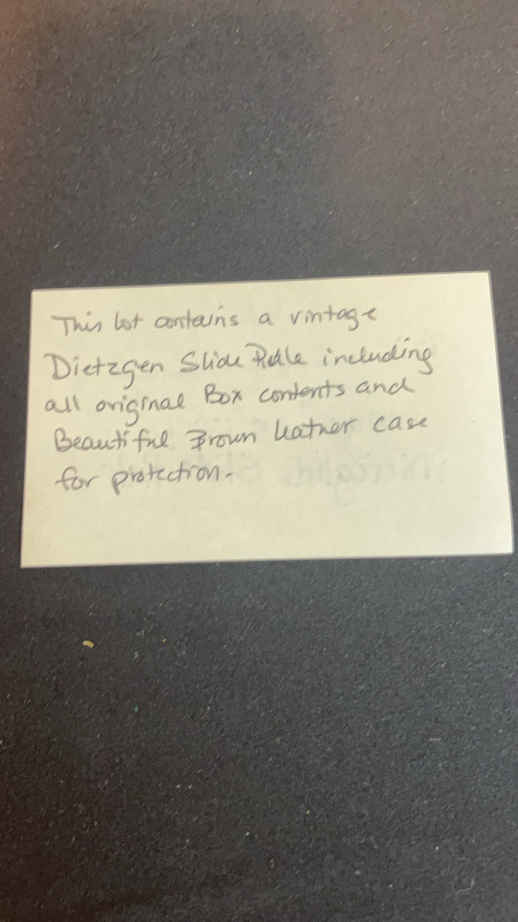 This lot contains a vintage
Dietzgen Slide Rule including
all original Box contents and
Beautiful Brown leather case
for protection.